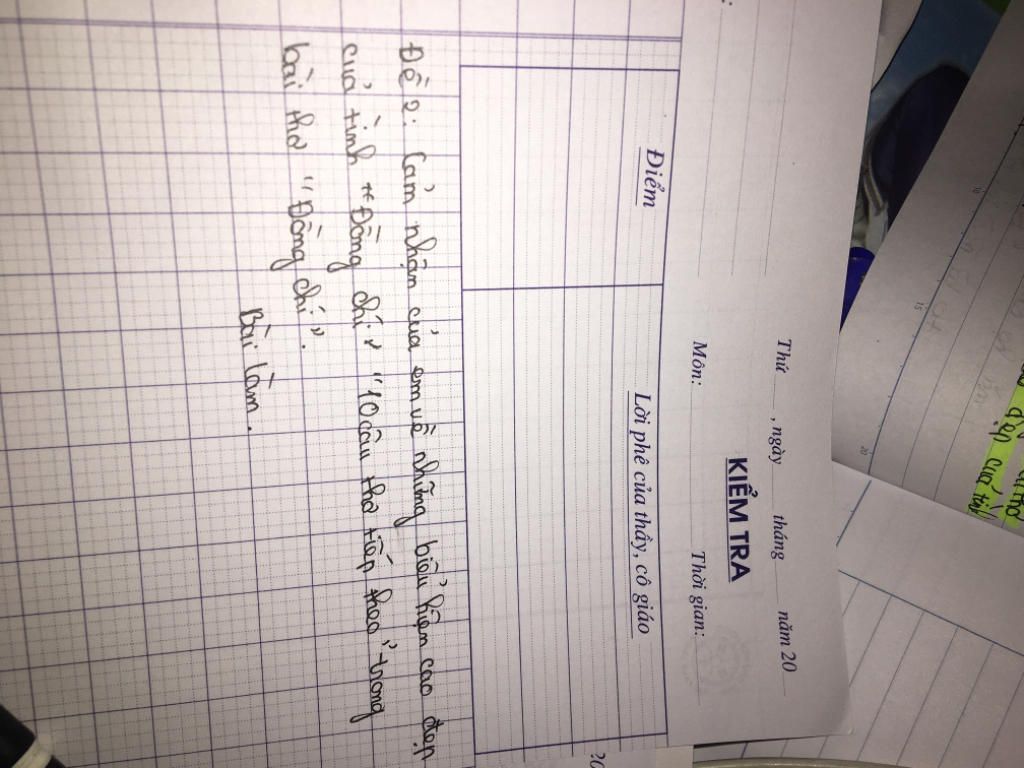 KIỂM TRA
Thứ , ngày tháng năm 20
Môn: Thời gian:
Điểm
Lời phê của thầy, cô giáo
Đề 2: Cảm nhận của em về những biểu hiện cao đẹp
của tình "Đồng chí" "10 câu thơ tiếp theo" trong
bài thơ "Đồng chí".
Bài làm.